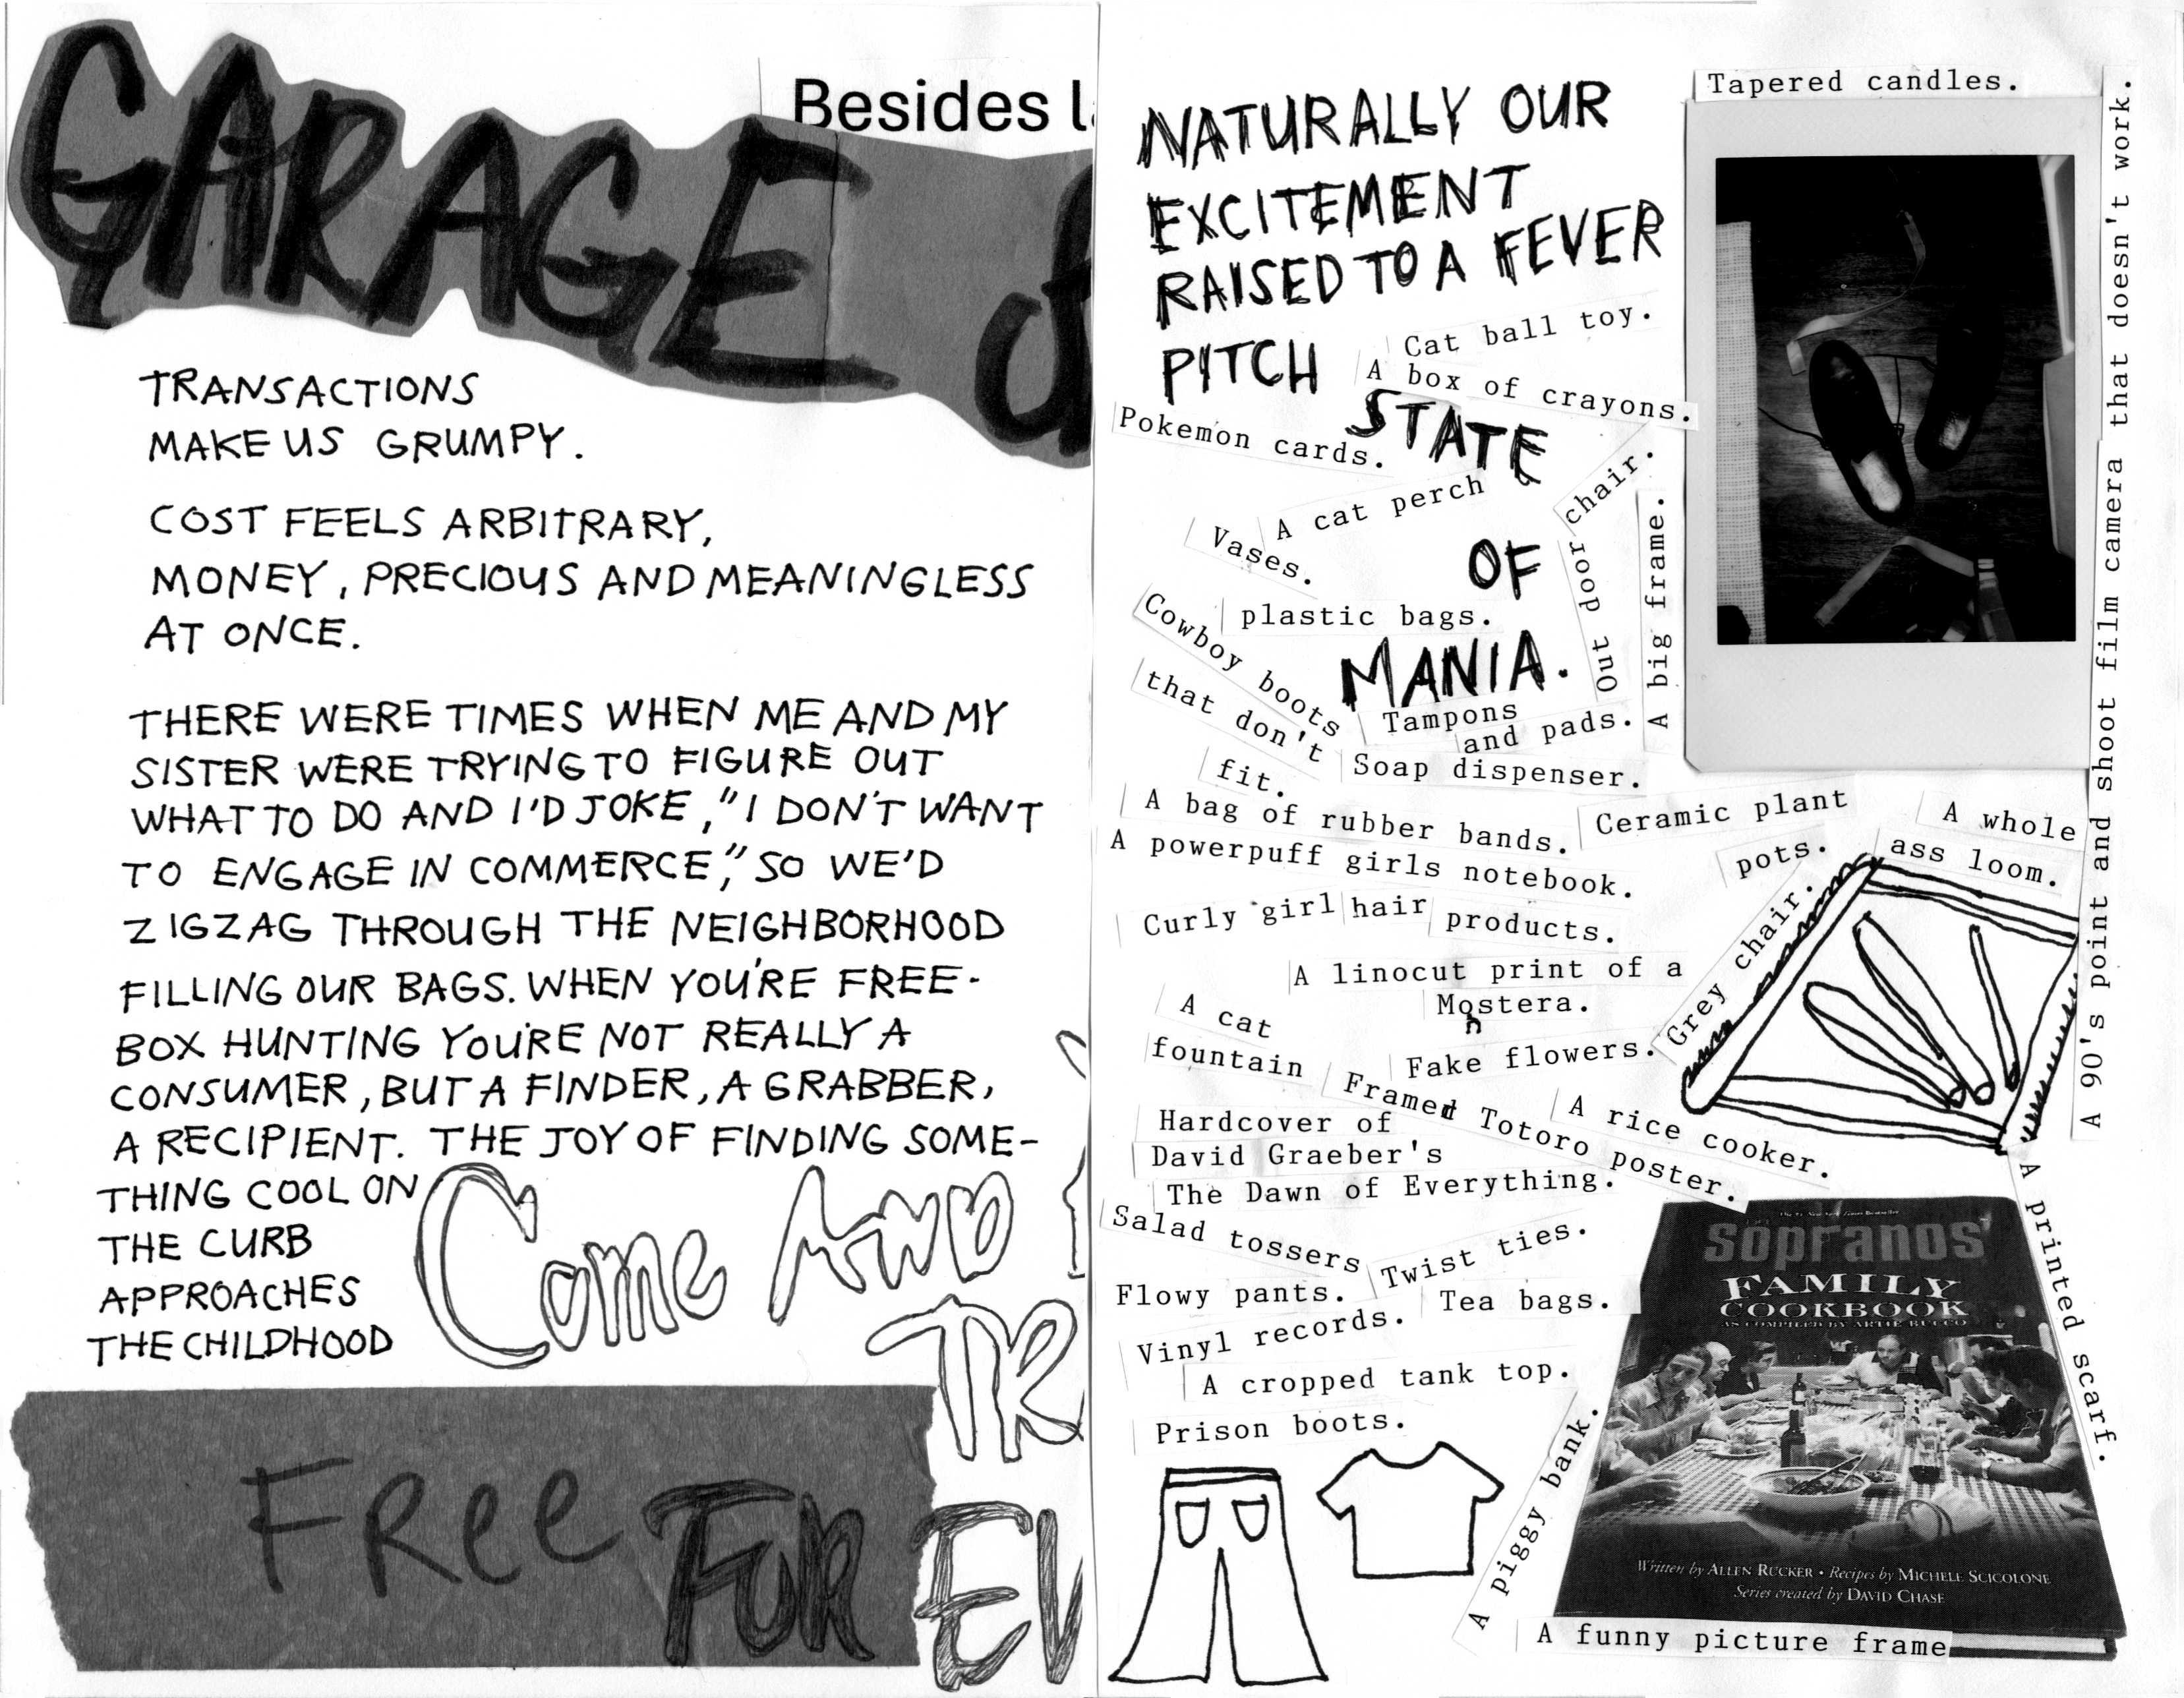 GARAGE
Besides
TRANSACTIONS
MAKE US GRUMPY.
COST FEELS ARBITRARY,
MONEY, PRECIOUS AND MEANINGLESS
AT ONCE.
THERE WERE TIMES WHEN ME AND MY
SISTER WERE TRYING TO FIGURE OUT
WHAT TO DO AND I'D JOKE, "I DON'T WANT
TO ENGAGE IN COMMERCE," SO WE'D
ZIGZAG THROUGH THE NEIGHBORHOOD
FILLING OUR BAGS. WHEN YOU'RE FREE-
BOX HUNTING YOU'RE NOT REALLY A
CONSUMER, BUT A FINDER, A GRABBER,
A RECIPIENT. THE JOY OF FINDING SOME-
THING COOL ON
THE CURB
APPROACHES
THE CHILDHOOD
Come AND
TR
Free FUR EV
NATURALLY OUR
EXCITEMENT
RAISED TO A FEVER
PITCH
STATE
OF
MANIA.
Tapered candles.
Cat ball toy.
A box of crayons.
Pokemon cards.
A cat perch
Vases.
Out poor chair.
A big frame.
plastic bags.
Cowboy boots
that don't
fit.
Tampons
and pads.
Soap dispenser.
A bag of rubber bands.
A powerpuff girls notebook.
Ceramic plant
pots.
A whole
ass loom.
A 90's point and shoot film camera that doesn't work.
Curly girl hair products.
Grey chair.
A linocut print of a
Mostera.
n
A cat
fountain
Fake flowers.
Framed Totoro poster.
A rice cooker.
Hardcover of
David Graeber's
The Dawn of Everything.
Salad tossers
Twist ties.
Flowy pants.
Tea bags.
Vinyl records.
A cropped tank top.
Prison boots.
A piggy bank.
A printed scarf.
The #1 New York Times Bestseller
THE
sopranos
FAMILY
COOKBOOK
AS COMPILED BY ARTIE BUCCO
Written by ALLEN RUCKER • Recipes by MICHELE SCICOLONE
Series created by DAVID CHASE
A funny picture frame